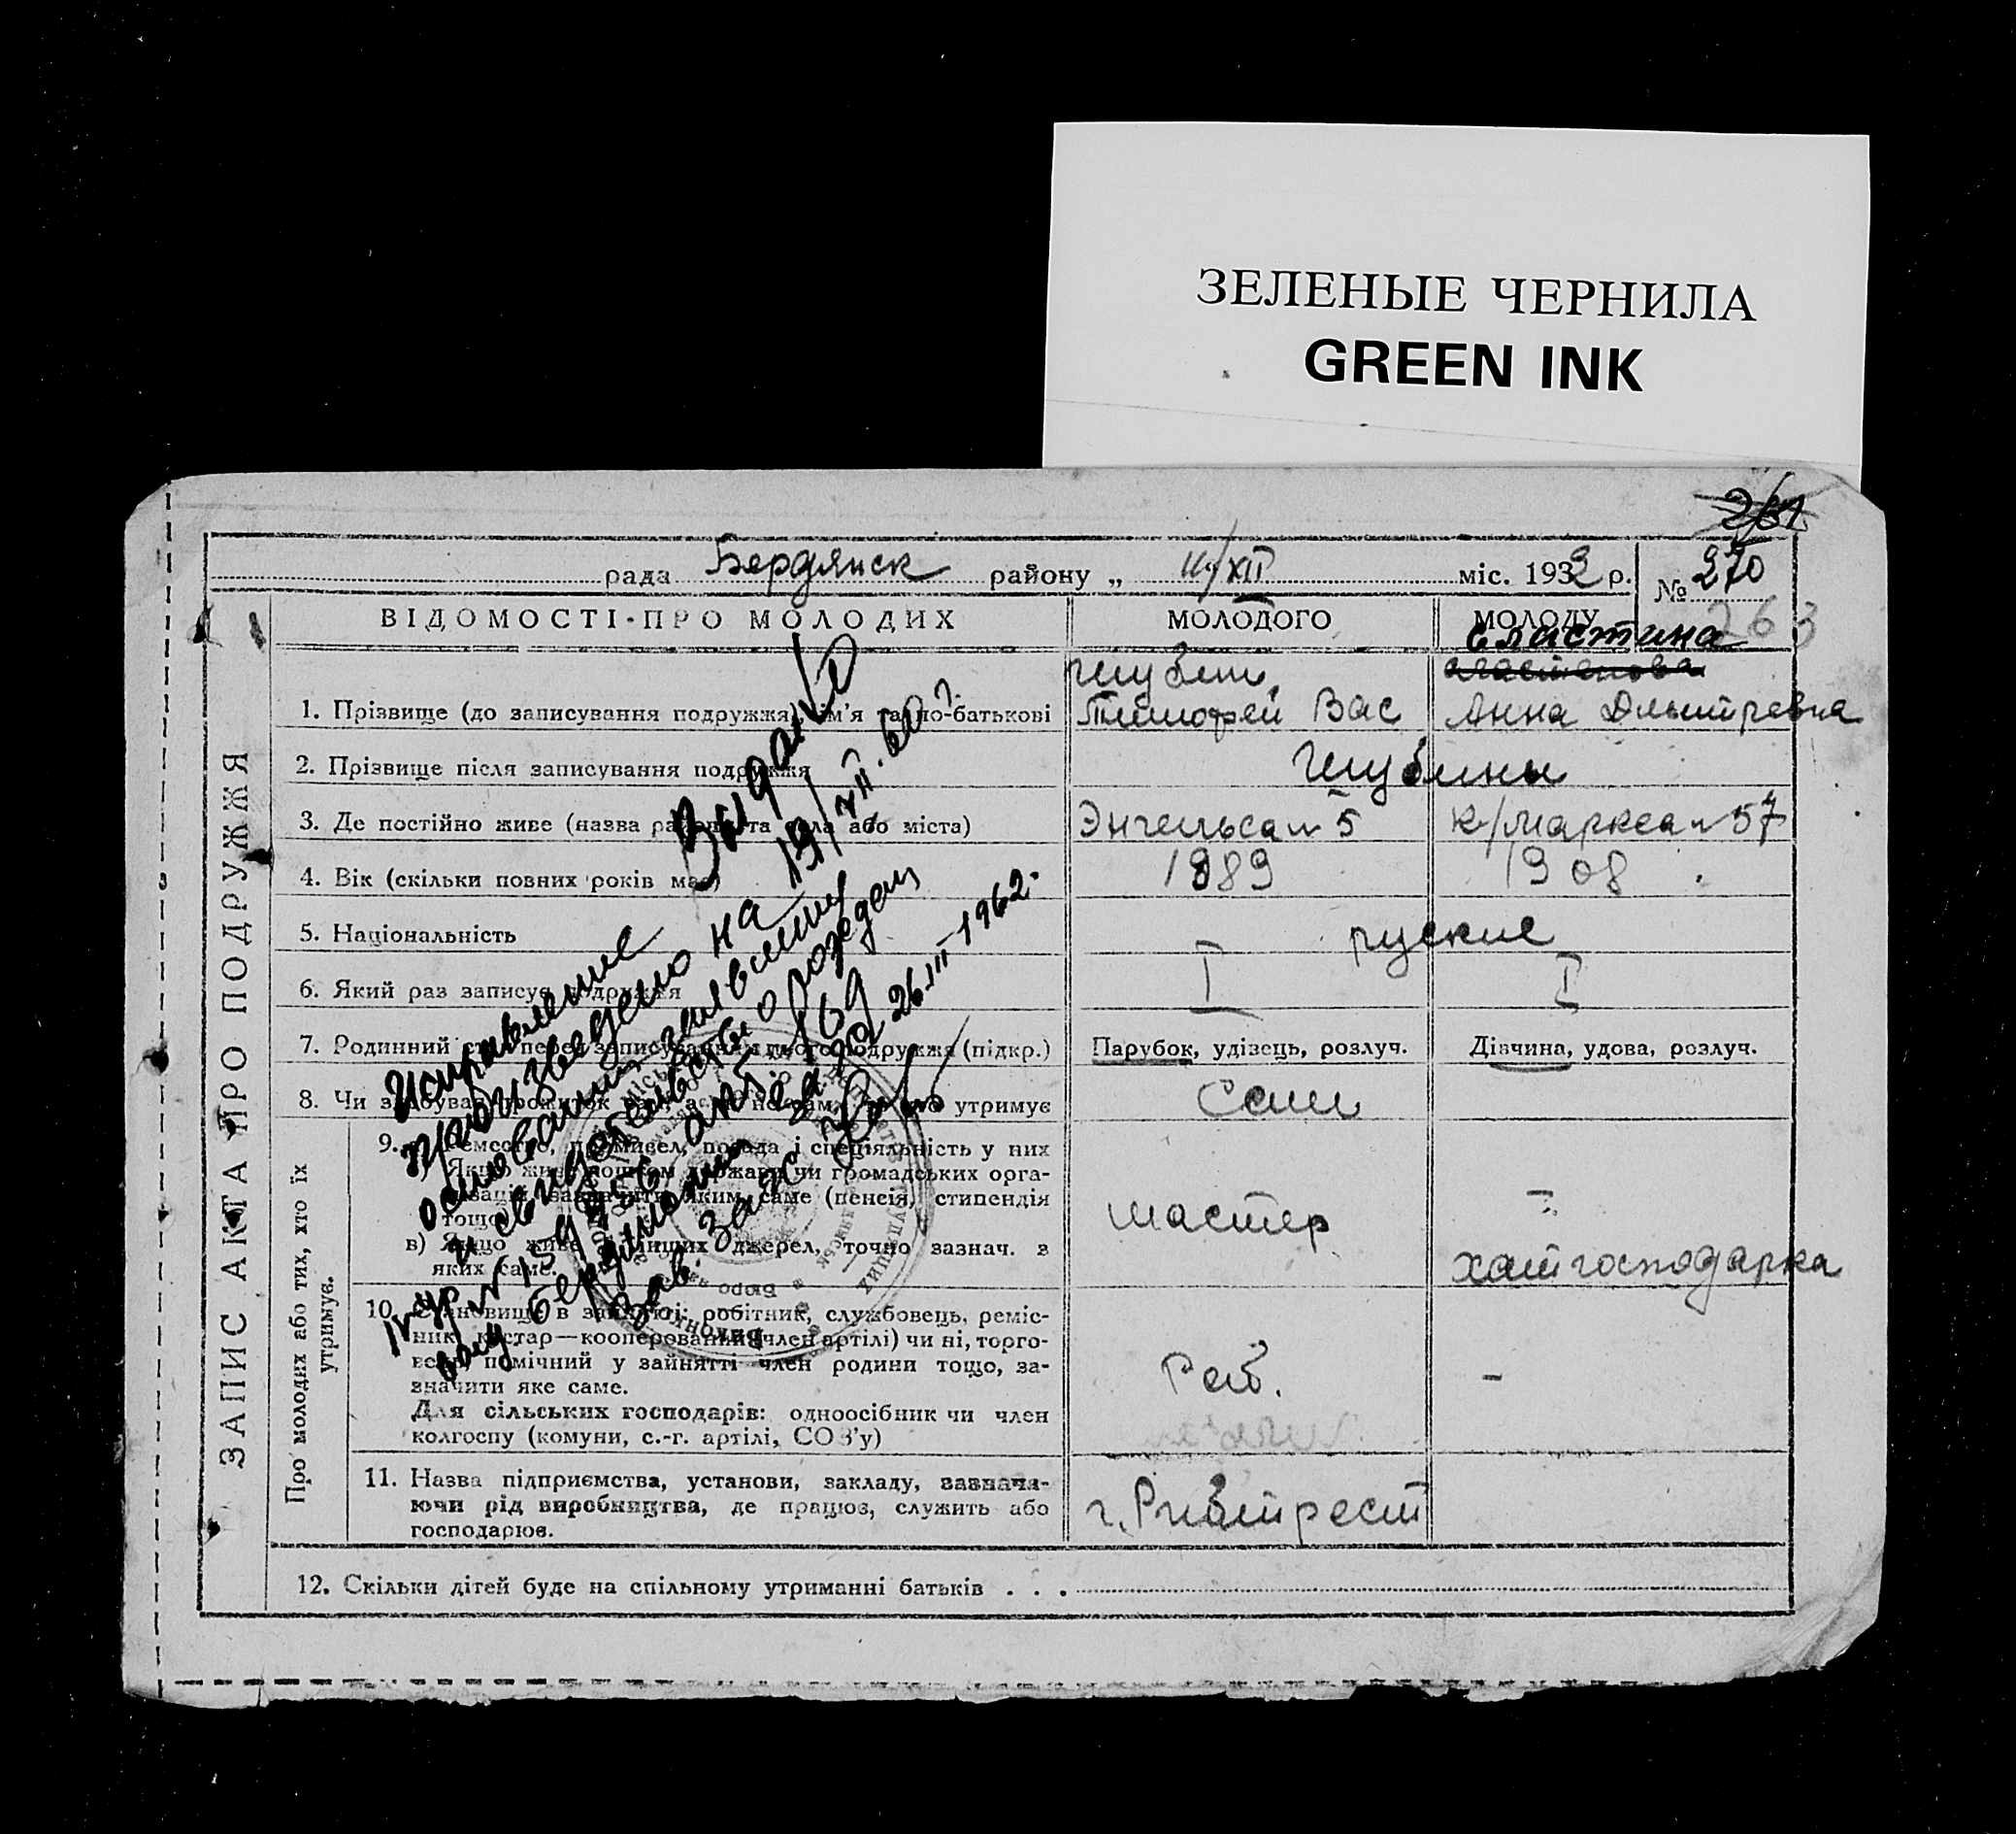 ЗЕЛЕНЫЕ ЧЕРНИЛА
GREEN INK
261
рада Бердянск району „ 11/XII міс. 1932 р. № 270
263
ВІДОМОСТІ ПРО МОЛОДИХ МОЛОДОГО МОЛОДУ
Сластина
1. Прізвище (до записування подружжя), ім'я та по-батькові Тимофей Вас Анна Дмитревна
2. Прізвище після записування подружжя
3. Де постійно живе (назва району та села або міста) Энгельса № 5 К/Маркса № 57
4. Вік (скільки повних років має) 1889 1908
5. Національність руские
6. Який раз записує подружжя I I
7. Родинний стан перед записуванням цього подружжя (підкр.) Парубок, удівець, розлуч. Дівчина, удова, розлуч.
8. Чи здобуває прожиток сам, а коли не сам, то хто утримує Сам
ЗАПИС АКТА ПРО ПОДРУЖЖЯ
Про молодих або тих, хто їх
утримує.
9. Ремесло, промисел, посада і спеціяльність у них
Якщо живе коштом держави чи громадських орга-
нізацій, зазначити яким саме (пенсія, стипендія
тощо)
мастер -
в) Якщо живе з інших джерел, точно зазнач. з
яких саме.
хатгосподарка
10. Становище в занятті: робітник, службовець, реміс-
ник, кустар—кооперований (член артілі) чи ні, торго-
вець, помічний у зайнятті член родини тощо, за-
значити яке саме.
Раб. -
Для сільських господарів: одноосібник чи член
колгоспу (комуни, с.-г. артілі, СОЗ'у)
11. Назва підприємства, установи, закладу, зазнача-
ючи рід виробництва, де працює, служить або
господарює.
г. Рибтрест
12. Скільки дітей буде на спільному утриманні батьків . . .
Видано
19/XII.60 г.
Исправление
произведено на
основании заявления
и свидетельства о рожден
за 26.III-1962.
Зав. Загс